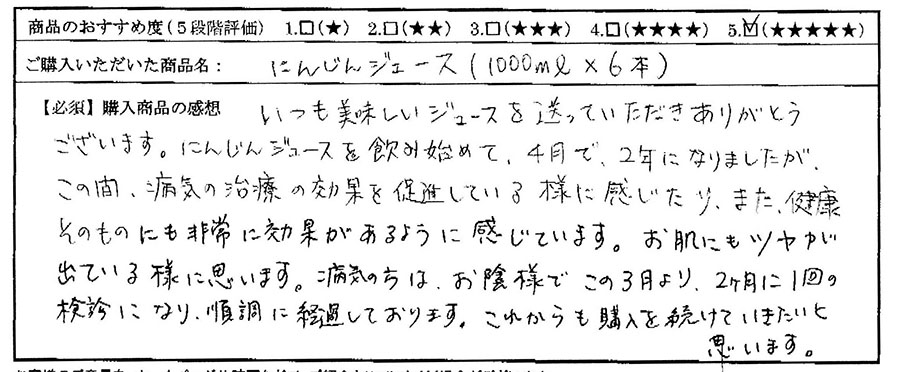 商品のおすすめ度（5段階評価） 1.□(★) 2.□(★★) 3.□(★★★) 4.□(★★★★) 5.☑(★★★★★)
ご購入いただいた商品名： にんじんジュース（1000ml×6本）
【必須】購入商品の感想 いつも美味しいジュースを送っていただきありがとう
ございます。にんじんジュースを飲み始めて、4月で、2年になりましたが、
この間、病気の治療の効果を促進している様に感じたり、また、健康
そのものにも非常に効果があるように感じています。お肌にもツヤが
出ている様に思います。病気のちは、お陰様でこの3月より、2ヶ月に1回の
検診になり、順調に経過しております。これからも購入を続けていきたいと
思います。